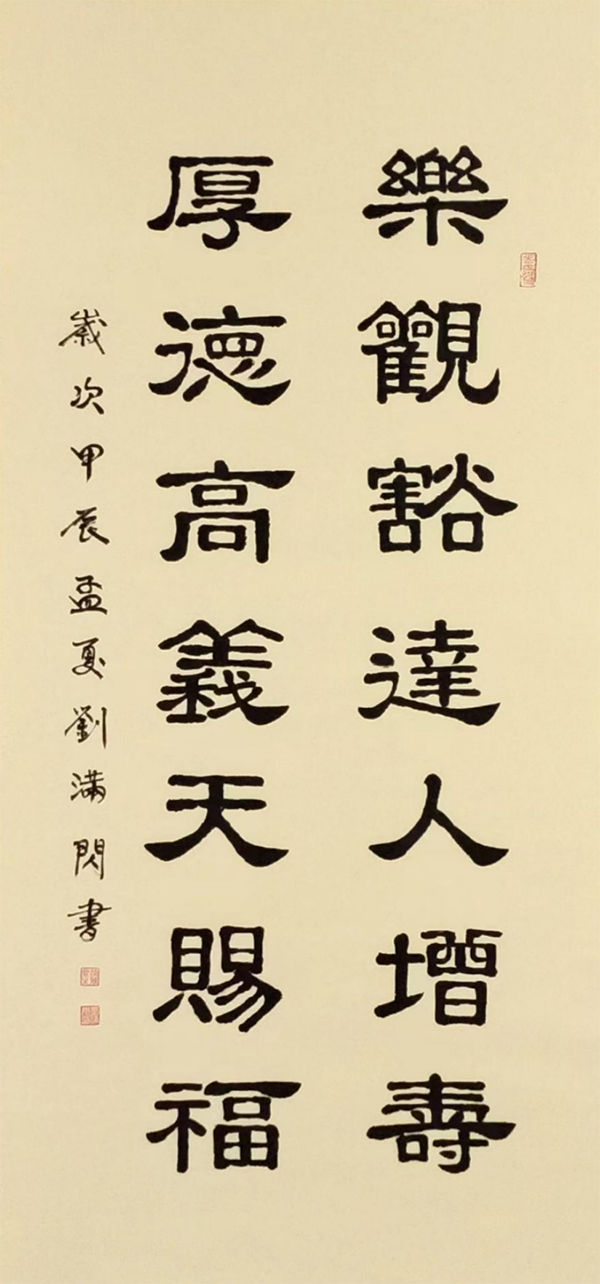 樂觀豁達人增壽
厚德高義天賜福
歲次甲辰孟夏劉滿閃書